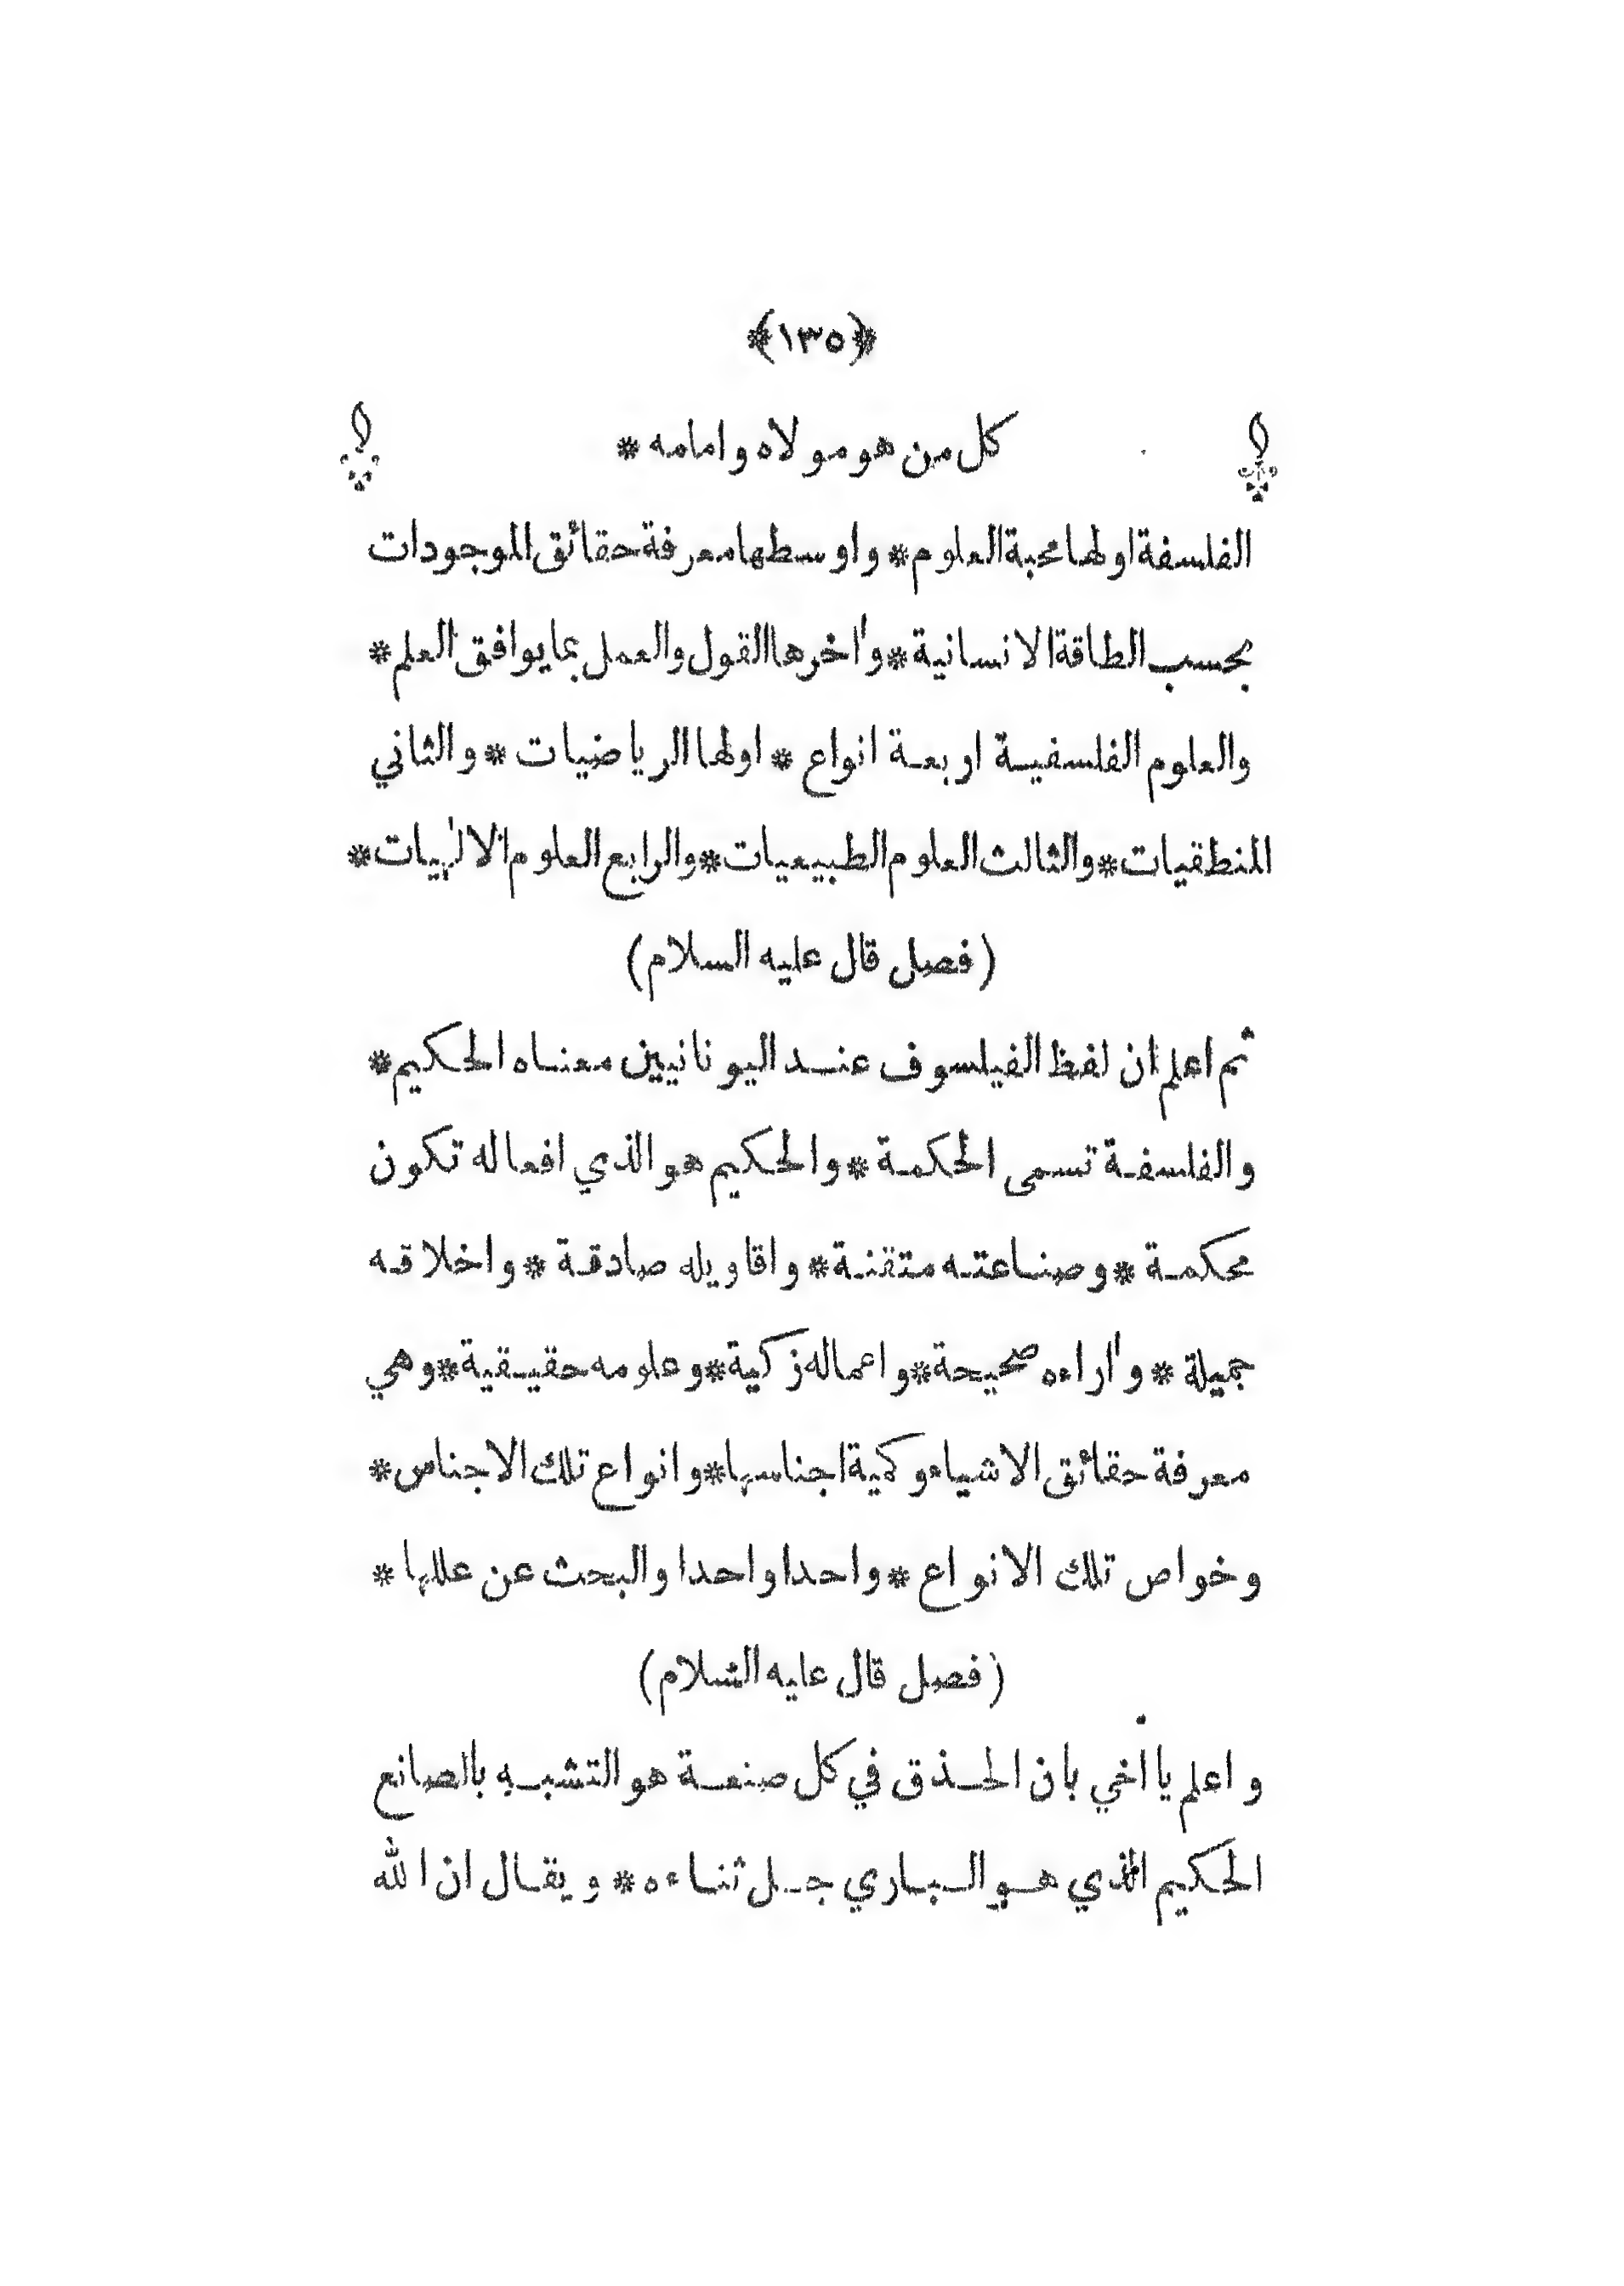 ﴿١٣٥﴾
كل من هو مولاه وامامه *
الفلسفة اولها محبة العلوم * واوسطها معرفة حقائق الموجودات
بحسب الطاقة الانسانية * وآخرها القول والعمل بما يوافق العلم *
والعلوم الفلسفية اربعة انواع * اولها الرياضيات * والثاني
المنطقيات * والثالث العلوم الطبيعيات * والرابع العلوم الالٰهيات *
(فصل قال عليه السلام)
ثم اعلم ان لفظ الفيلسوف عند اليونانيين معناه الحكيم *
والفلسفة تسمى الحكمة * والحكيم هو الذي افعاله تكون
محكمة * وصناعته متقنة * واقاويله صادقة * واخلاقه
جميلة * وآراءه صحيحة * واعماله زكية * وعلومه حقيقية * وهي
معرفة حقائق الاشياء وكمية اجناسها * وانواع تلك الاجناس *
وخواص تلك الانواع * واحدا واحدا والبحث عن عللها *
(فصل قال عليه السلام)
واعلم يا اخي بان الحذق في كل صنعة هو التشبه بالصانع
الحكيم الذي هو الباري جل ثناءه * ويقال ان الله